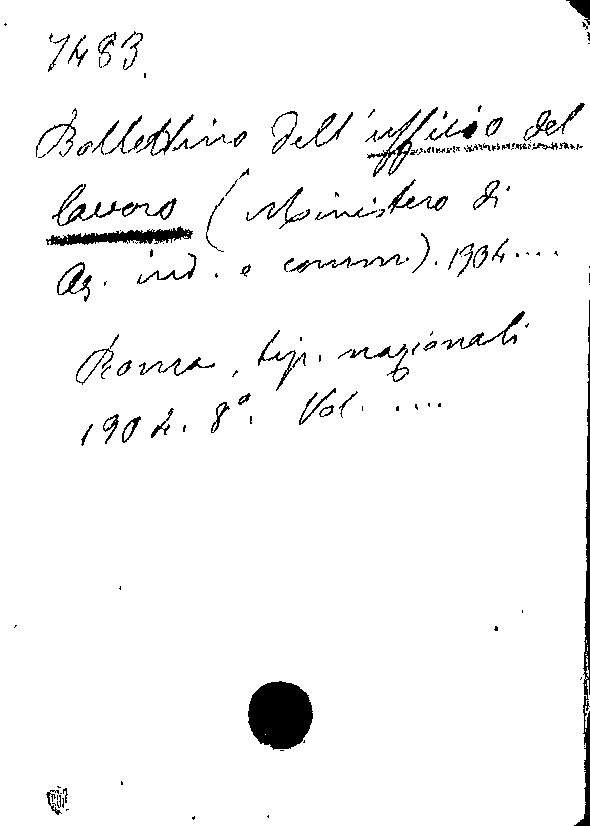 7483.
Bollettino dell'ufficio del
lavoro (Ministero di
Ag. ind. e comm.). 1904....
Roma, tip. nazionali
1904. 8°. Vol. ....